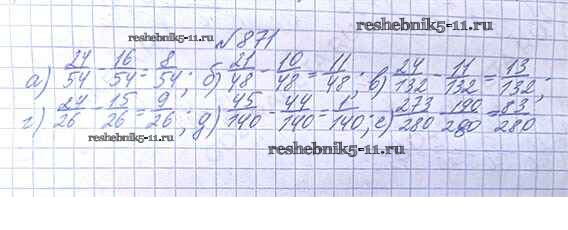 reshebnik5-11.ru
№871
reshebnik5-11.ru
а) 24/54 - 16/54 = 8/54; б) 21/48 - 10/48 = 11/48; в) 24/132 - 11/132 = 13/132;
г) 24/26 - 15/26 = 9/26; д) 45/140 - 44/140 = 1/140; е) 273/280 - 190/280 = 83/280
reshebnik5-11.ru
reshebnik5-11.ru